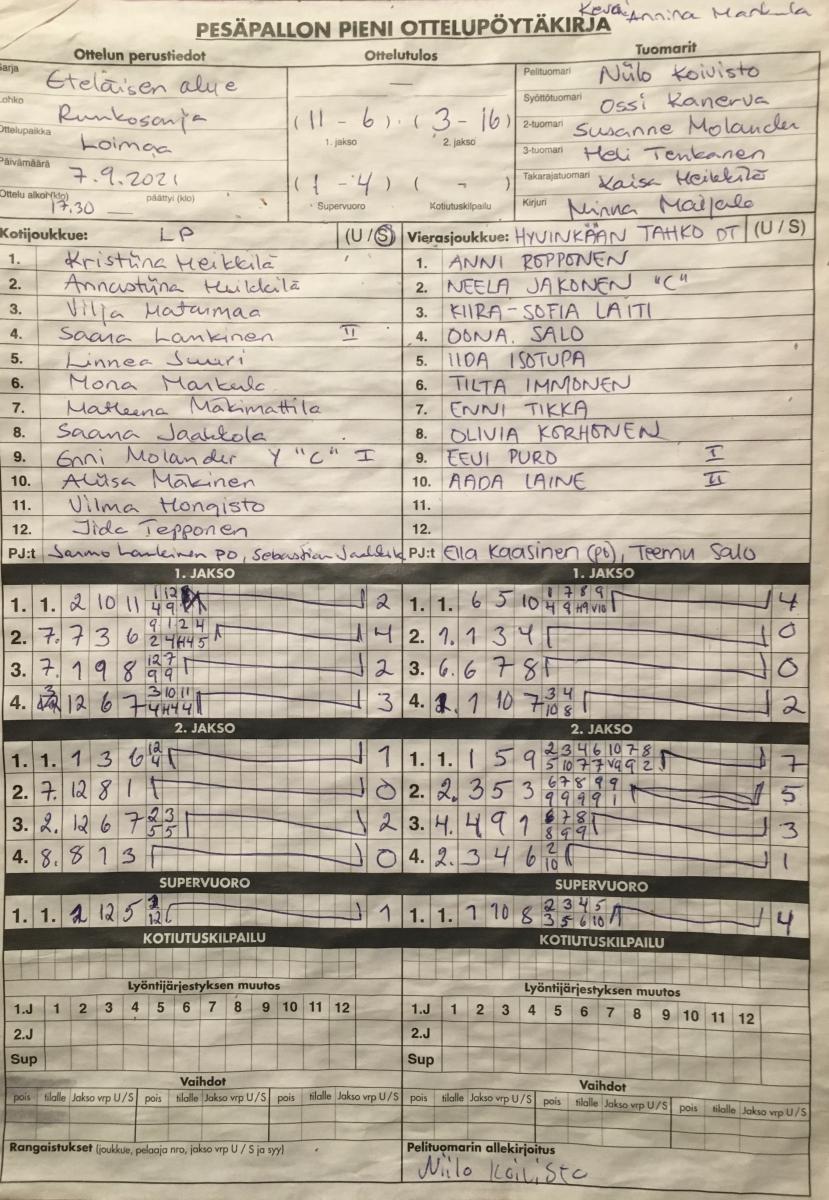 Annina Markula
PESÄPALLON PIENI OTTELUPÖYTÄKIRJA
Ottelun perustiedot Ottelutulos Tuomarit
Sarja Eteläisen alue
Lohko Runkosarja
Ottelupaikka Loimaa
Päivämäärä 7.9.2021
Ottelu alkoi (klo) 17.30 päättyi (klo)
(11 - 6) · (3 - 16)
1. jakso 2. jakso
(1 - 4) ( - )
Supervuoro Kotiutuskilpailu
Pelituomari Niilo Koivisto
Syöttötuomari Ossi Kanerva
2-tuomari Susanne Molander
3-tuomari Heli Tenkanen
Takarajatuomari Kaisa Heikkilä
Kirjuri Minna Maijala
Kotijoukkue: LP (U / S)
1. Kristiina Heikkilä
2. Annastiina Heikkilä
3. Vilja Matarmaa
4. Saana Lankinen II
5. Linnea Suuri
6. Mona Markula
7. Matleena Mäkimattila
8. Saana Jaakkola
9. Enni Molander Y "C" I
10. Aliisa Mäkinen
11. Vilma Hongisto
12. Iida Tepponen
PJ:t Jarmo Lankinen PO, Sebastian
Vierasjoukkue: HYVINKÄÄN TAHKO DT (U / S)
1. ANNI ROPPONEN
2. NEELA JAKONEN "C"
3. KIIRA-SOFIA LAITI
4. OONA SALO
5. IIDA ISOTUPA
6. TILTA IMMONEN
7. ENNI TIKKA
8. OLIVIA KORHONEN
9. EEVI PURO I
10. AADA LAINE II
11.
12.
PJ:t Ella Kaasinen (PO), Teemu Salo
1. JAKSO 1. JAKSO
1. 1. 2 10 11 2
2. 7. 7 3 6 9 1 2 4 4
2 4 H4 5
3. 7. 1 9 8 12 7 2
9 9
4. 12 6 7 3 10 11 3
4 H4 4
1. 1. 6 5 10 1 7 8 9 4
4 9 H9 V10
2. 1. 1 3 4 0
3. 6. 6 7 8 0
4. 1. 1 10 7 3 4 2
10 8
2. JAKSO 2. JAKSO
1. 1. 1 3 6 12 1
4
2. 7. 12 8 1 0
3. 2. 12 6 7 2 3 2
5 5
4. 8. 8 1 3 0
1. 1. 1 5 9 2 3 4 6 10 7 8 7
5 10 7 7 V9 9 2
2. 2. 3 5 3 6 7 8 9 9 5
9 9 9 9 1
3. 4. 4 9 1 6 7 8 3
8 9 9
4. 2. 3 4 6 2 1
10
SUPERVUORO SUPERVUORO
1. 1. 2 12 5 1
12
1. 1. 1 10 8 2 3 4 5 4
3 5 6 10
KOTIUTUSKILPAILU KOTIUTUSKILPAILU
Lyöntijärjestyksen muutos Lyöntijärjestyksen muutos
1.J 1 2 3 4 5 6 7 8 9 10 11 12 1.J 1 2 3 4 5 6 7 8 9 10 11 12
2.J 2.J
Sup Sup
Vaihdot Vaihdot
pois tilalle Jakso vrp U / S pois tilalle Jakso vrp U / S pois tilalle Jakso vrp U / S pois tilalle Jakso vrp U / S pois tilalle Jakso vrp U / S pois tilalle Jakso vrp U / S
Rangaistukset (joukkue, pelaaja nro, jakso vrp U / S ja syy) Pelituomarin allekirjoitus
Niilo Koivisto